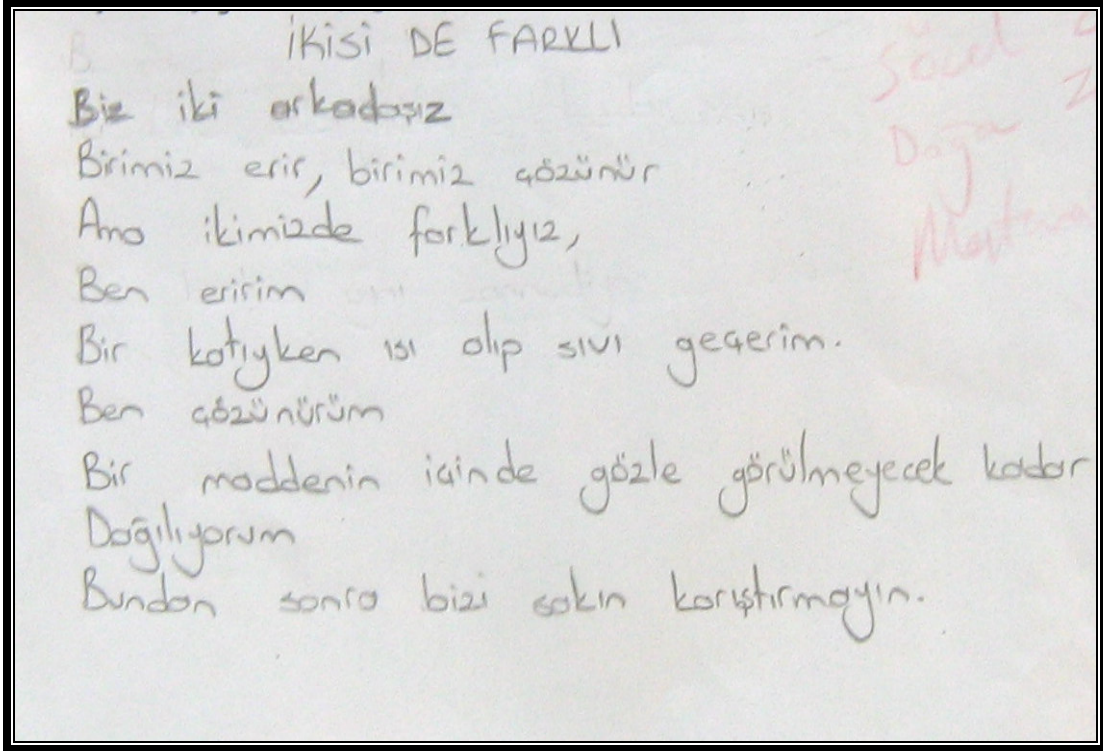 İKİSİ DE FARKLI
Biz iki arkadaşız
Birimiz erir, birimiz çözünür
Ama ikimizde farklıyız,
Ben eririm
Bir katıyken ısı alıp sıvı geçerim.
Ben çözünürüm
Bir maddenin içinde gözle görülmeyecek kadar
Dağılıyorum
Bundan sonra bizi sakın karıştırmayın.